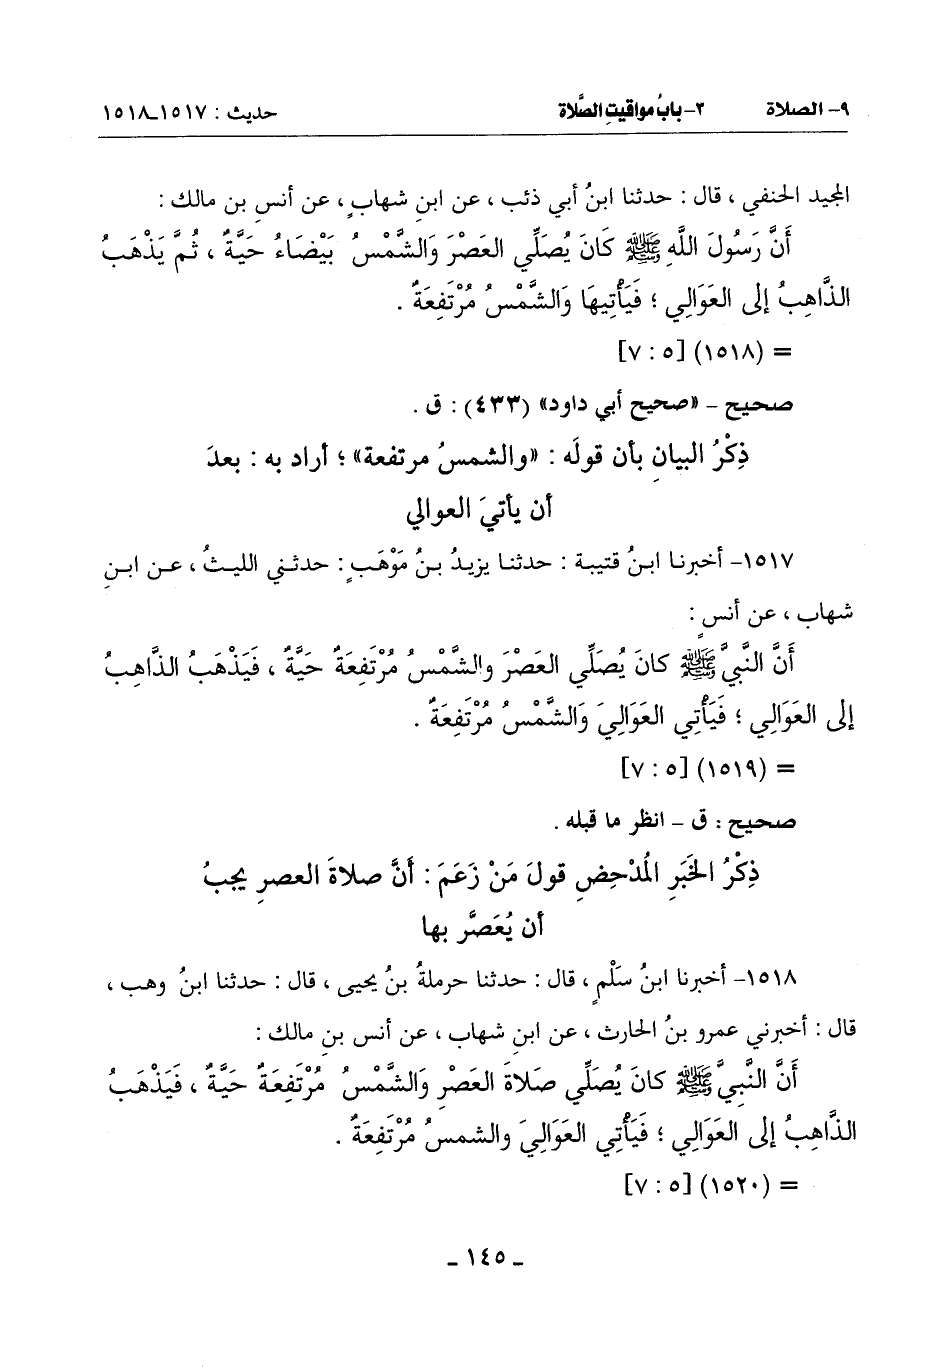 ٩- الصلاة ٣- بابُ مواقيتِ الصَّلاة حديث : ١٥١٧ـ١٥١٨
المجيد الحنفي ، قال : حدثنا ابنُ أبي ذئب ، عن ابنِ شهابٍ، عن أنسِ بن مالك :
أَنَّ رَسُولَ اللَّهِ ﷺ كَانَ يُصَلِّي العَصْرَ وَالشَّمْسُ بَيْضَاءُ حَيَّةٌ ، ثُمَّ يَذْهَبُ
الذَّاهِبُ إلى العَوَالِي ؛ فَيَأْتِيهَا وَالشَّمْسُ مُرْتَفِعَةٌ .
= (١٥١٨) [٥ : ٧]
صحيح - «صحيح أبي داود» (٤٣٣) : ق .
ذِكْرُ البيانِ بأن قولَه : «والشمسُ مرتفعة» ؛ أراد به : بعدَ
أن يأتيَ العوالي
١٥١٧- أخبرنـا ابـنُ قتيبـة : حدثنـا يزيـدُ بـنُ مَوْهَبٍ : حدثـني الليـثُ ، عـن ابـنِ
شهاب ، عن أنسٍ :
أَنَّ النَّبِيَّ ﷺ كانَ يُصَلِّي العَصْرَ والشَّمْسُ مُرْتَفِعَةٌ حَيَّةٌ ، فَيَذْهَبُ الذَّاهِبُ
إلى العَوَالِي ؛ فَيَأْتِي العَوَالِيَ وَالشَّمْسُ مُرْتَفِعَةٌ .
= (١٥١٩) [٥ : ٧]
صحيح : ق - انظر ما قبله .
ذِكْرُ الخَبَرِ المُدْحِضِ قولَ مَنْ زَعَمَ : أَنَّ صلاةَ العصرِ يجبُ
أن يُعَصَّر بها
١٥١٨- أخبرنا ابنُ سَلْمٍ ، قال : حدثنا حرملةُ بنُ يحيى ، قال : حدثنا ابنُ وهب ،
قال : أخبرني عمرو بنُ الحارث ، عن ابنِ شهاب ، عن أنس بنِ مالك :
أَنَّ النَّبِيَّ ﷺ كانَ يُصَلِّي صَلاةَ العَصْرِ وَالشَّمْسُ مُرْتَفِعَةٌ حَيَّةٌ ، فَيَذْهَبُ
الذَّاهِبُ إلى العَوَالِي ؛ فَيَأْتِي العَوَالِيَ والشمسُ مُرْتَفِعَةٌ .
= (١٥٢٠) [٥ : ٧]
ـ ١٤٥ ـ